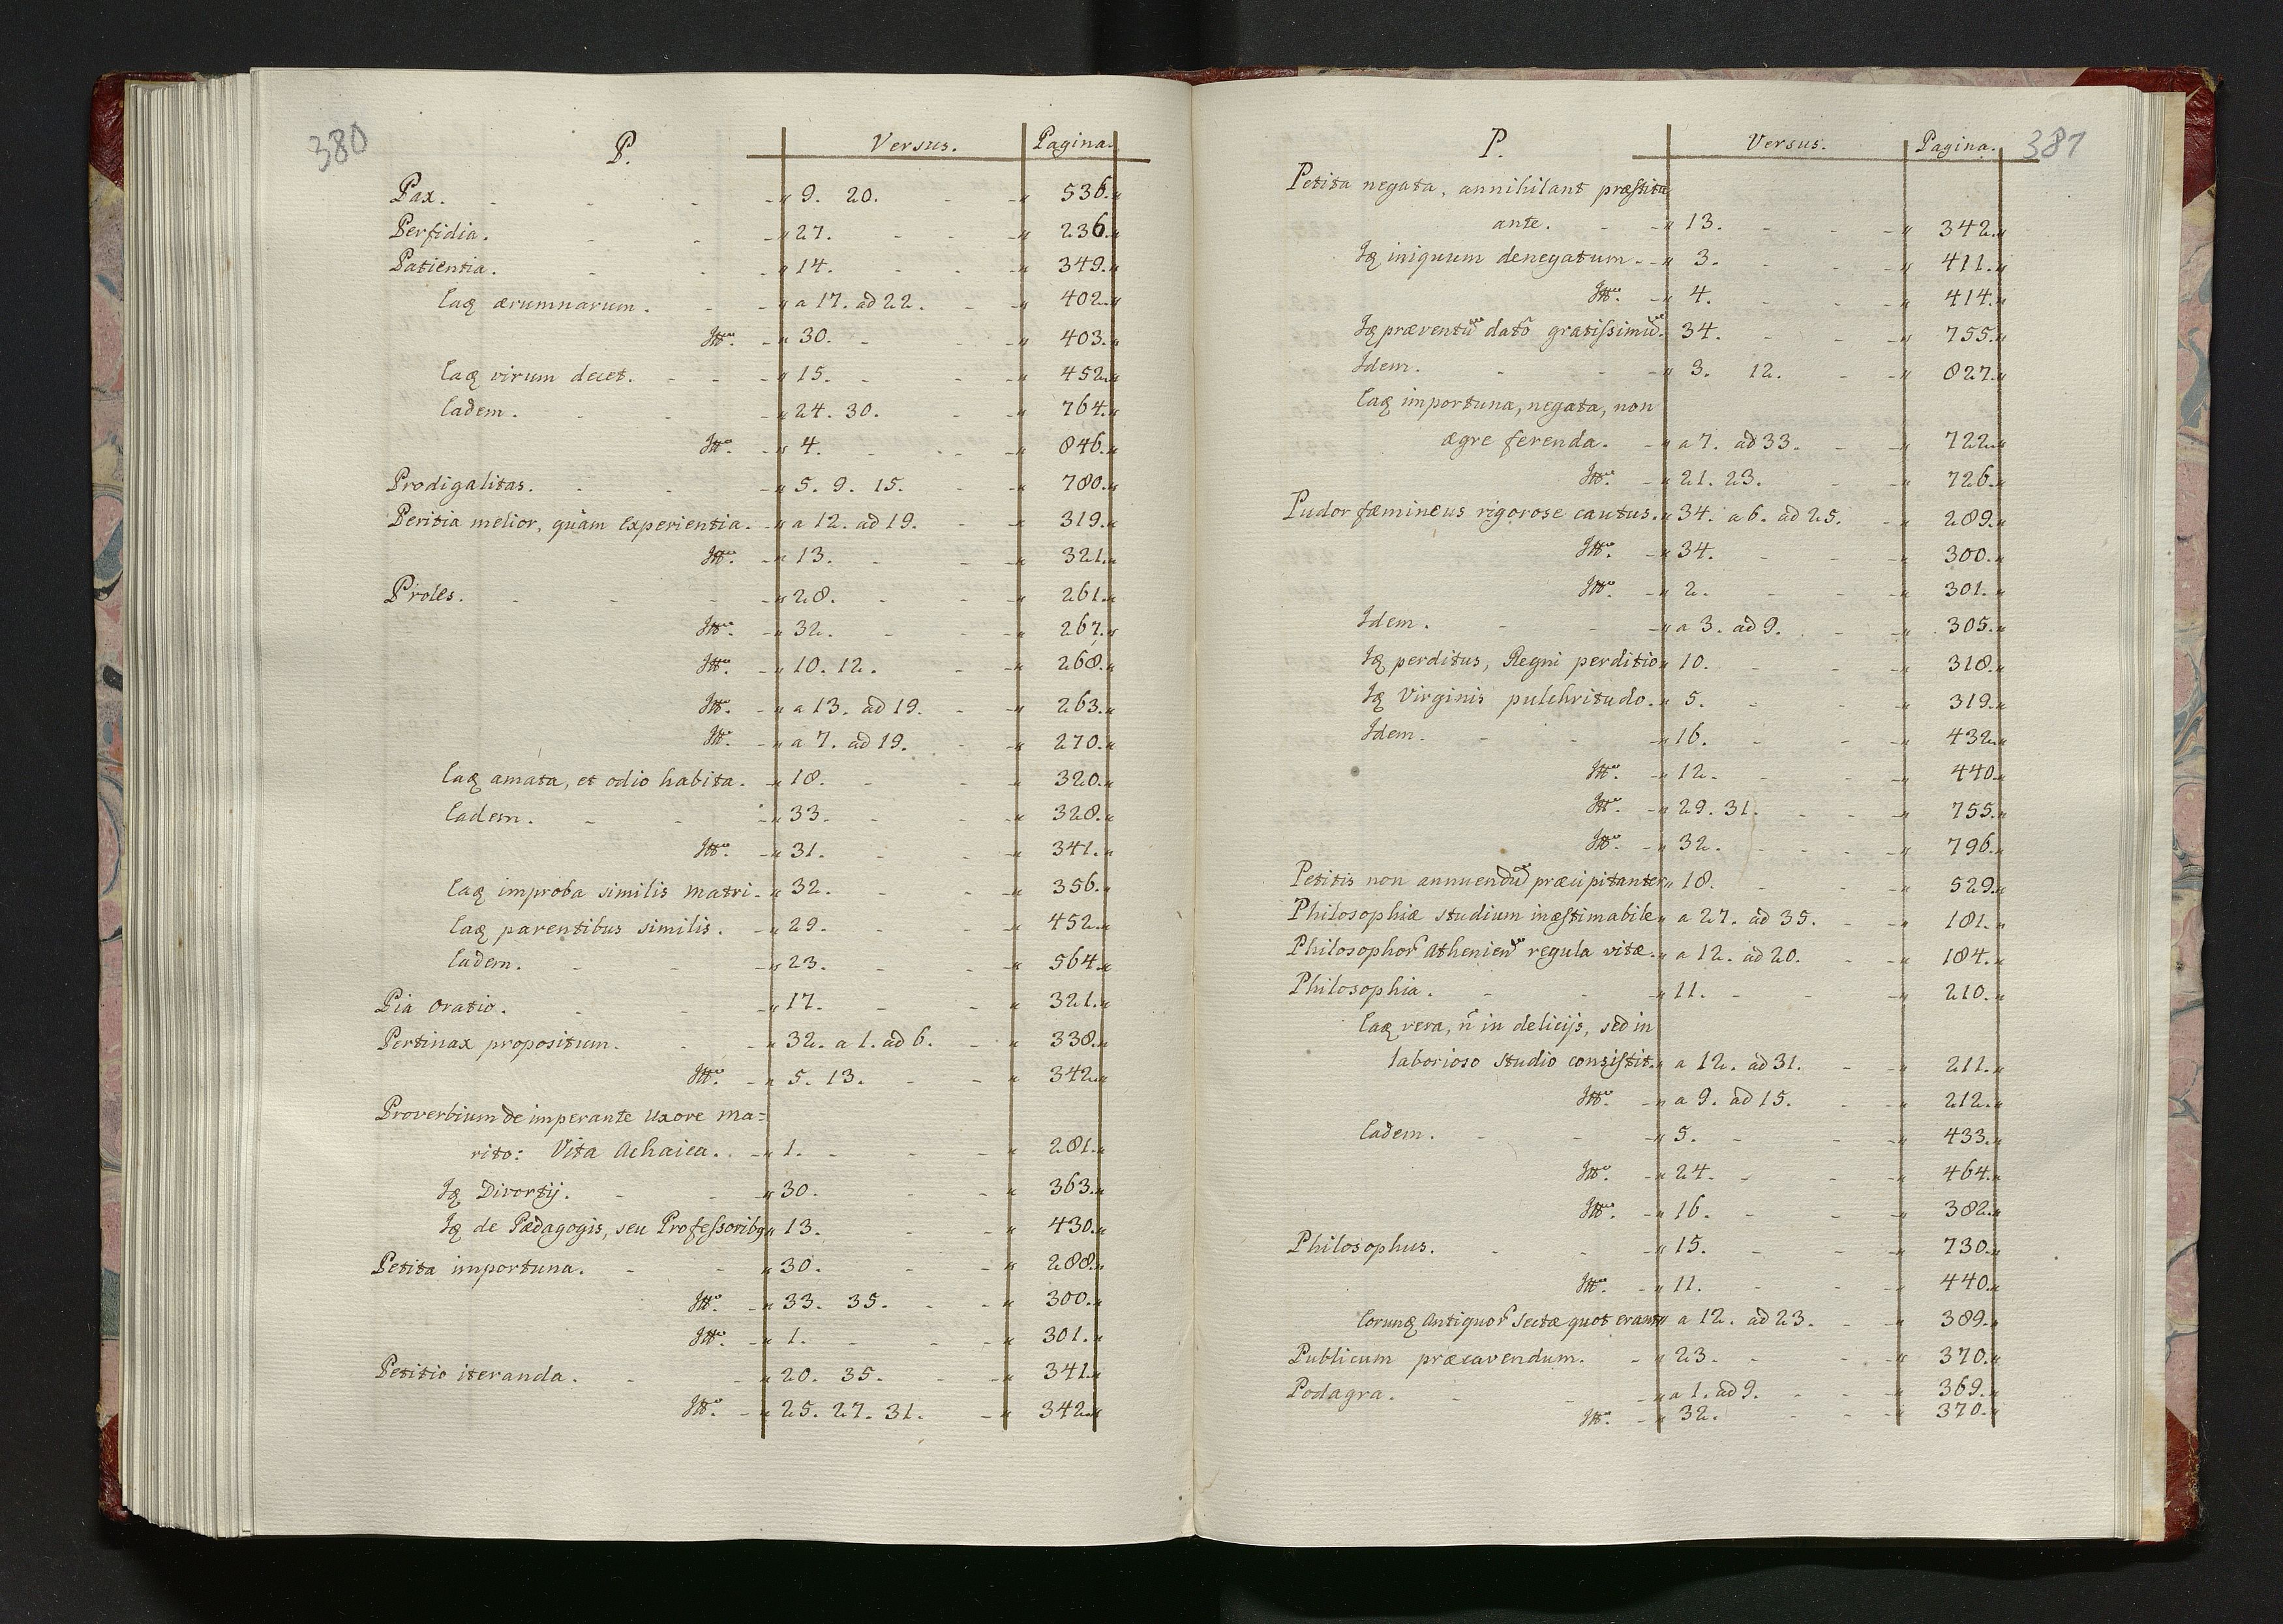 380
P. Versus. Pagina.
Pax. 9. 20. 536.
Perfidia. 27. 236.
Patientia. 14. 349.
Eaq ærumnarum. a 17. ad 22. 402.
Itt. 30. 403.
Eaq virum decet. 15. 452.
Eadem. 24. 30. 764.
Itt. 4. 846.
Prodigalitas. 5. 9. 15. 780.
Peritia melior, quàm Experientia. a 12. ad 19. 319.
Itt. 13. 321.
Proles. 28. 261.
Itt. 32. 267.
Itt. 10. 12. 268.
Itt. a 13. ad 19. 263.
Itt. a 7. ad 19. 270.
Eaq amata, et odio habita. 18. 320.
Eadem. 33. 328.
Itt. 31. 341.
Eaq improba similis matri. 32. 356.
Eaq parentibus similis. 29. 452.
Eadem. 23. 564.
Pia oratio. 17. 321.
Pertinax propositum. 32. a 1. ad 6. 338.
Itt. 5. 13. 342.
Proverbium de imperante Uxore ma=
rito: Vita Achaica. 1. 281.
Iq Divortij. 30. 363.
Iq de Pædagogis, seu Professoribq 13. 430.
Petita importuna. 30. 288.
Itt. 33. 35. 300.
Itt. 1. 301.
Petitio iteranda. 20. 35. 341.
Itt. 25. 27. 31. 342.
381
P. Versus. Pagina.
Petita negata, annihilant præstita
ante. 13. 342.
Iq iniquum denegatum. 3. 411.
Itt. 4. 414.
Iq præventu dato gratissimu. 34. 755.
Idem. 3. 12. 827.
Eaq importuna, negata, non
ægre ferenda. a 7. ad 33. 722.
Itt. 21. 23. 726.
Pudor fæmineus rigorose cautus. 34. a 6. ad 25. 289.
Itt. 34. 300.
Itt. 2. 301.
Idem. a 3. ad 9. 305.
Iq perditus, Regni perditio 10. 318.
Iq Virginis pulchritudo. 5. 319.
Idem. 16. 432.
Itt. 12. 440.
Itt. 29. 31. 755.
Itt. 32. 796.
Petitis non annuendu præcipitanter 18. 529.
Philosophiæ studium inæstimabile a 27. ad 35. 181.
Philosophor Athenien regula vitæ. a 12. ad 20. 184.
Philosophia. 11. 210.
Eaq vera, ñ in delicijs, sed in
laborioso studio consistit. a 12. ad 31. 211.
Itt. a 9. ad 15. 212.
Eadem. 5. 433.
Itt. 24. 464.
Itt. 16. 382.
Philosophus. 15. 730.
Itt. 11. 440.
Eorunq Antiquor Sectæ quot erant a 12. ad 23. 389.
Publicum præcavendum. 23. 370.
Podagra. a 1. ad 9. 369.
Itt. 32. 370.